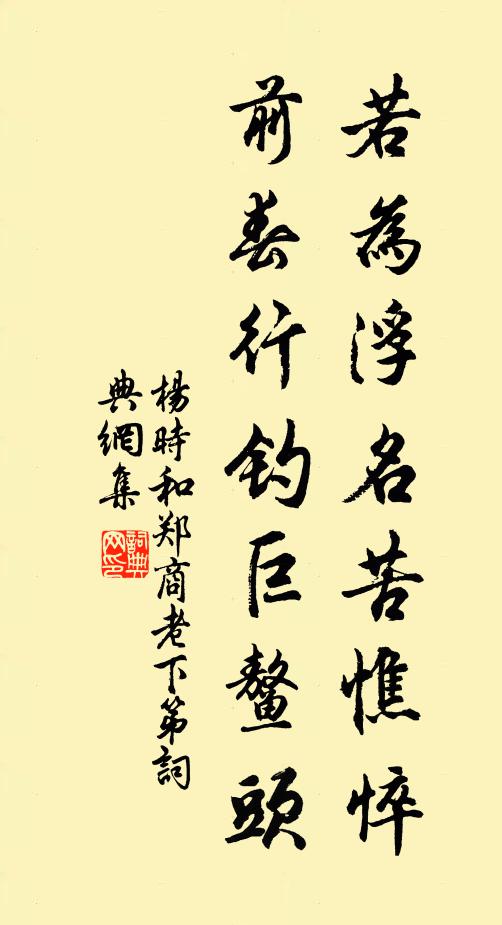 若為浮名苦憔悴
前春行釣巨鰲頭
楊時和郑商老下第詞
典網集
詞典网印